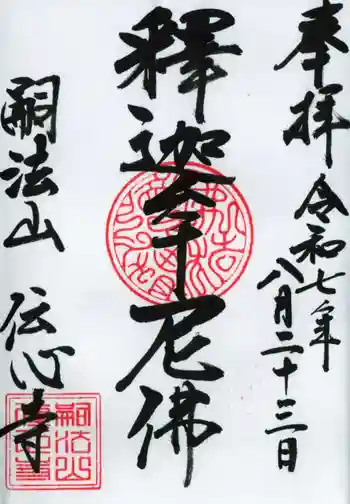 奉拝
令和七年
八月二十三日
釋迦牟尼佛
嗣法山 伝心寺